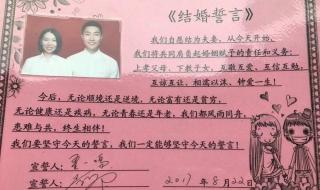 《结婚誓言》
我们自愿结为夫妻，从今天开始，
我们将共同肩负起婚姻赋予的责任和义务：
上孝父母，下教子女，互敬互爱，互信互勉，
互谅互让，相濡以沫，钟爱一生！
今后，无论顺境还是逆境，无论富有还是贫穷，
无论健康还是疾病，无论青春还是年老，我们都风雨同舟，
患难与共，终生相伴！
我们要坚守今天的誓言！我们一定能够坚守今天的誓言！
宣誓人：
宣誓人：
2017 年 8 月 22 日